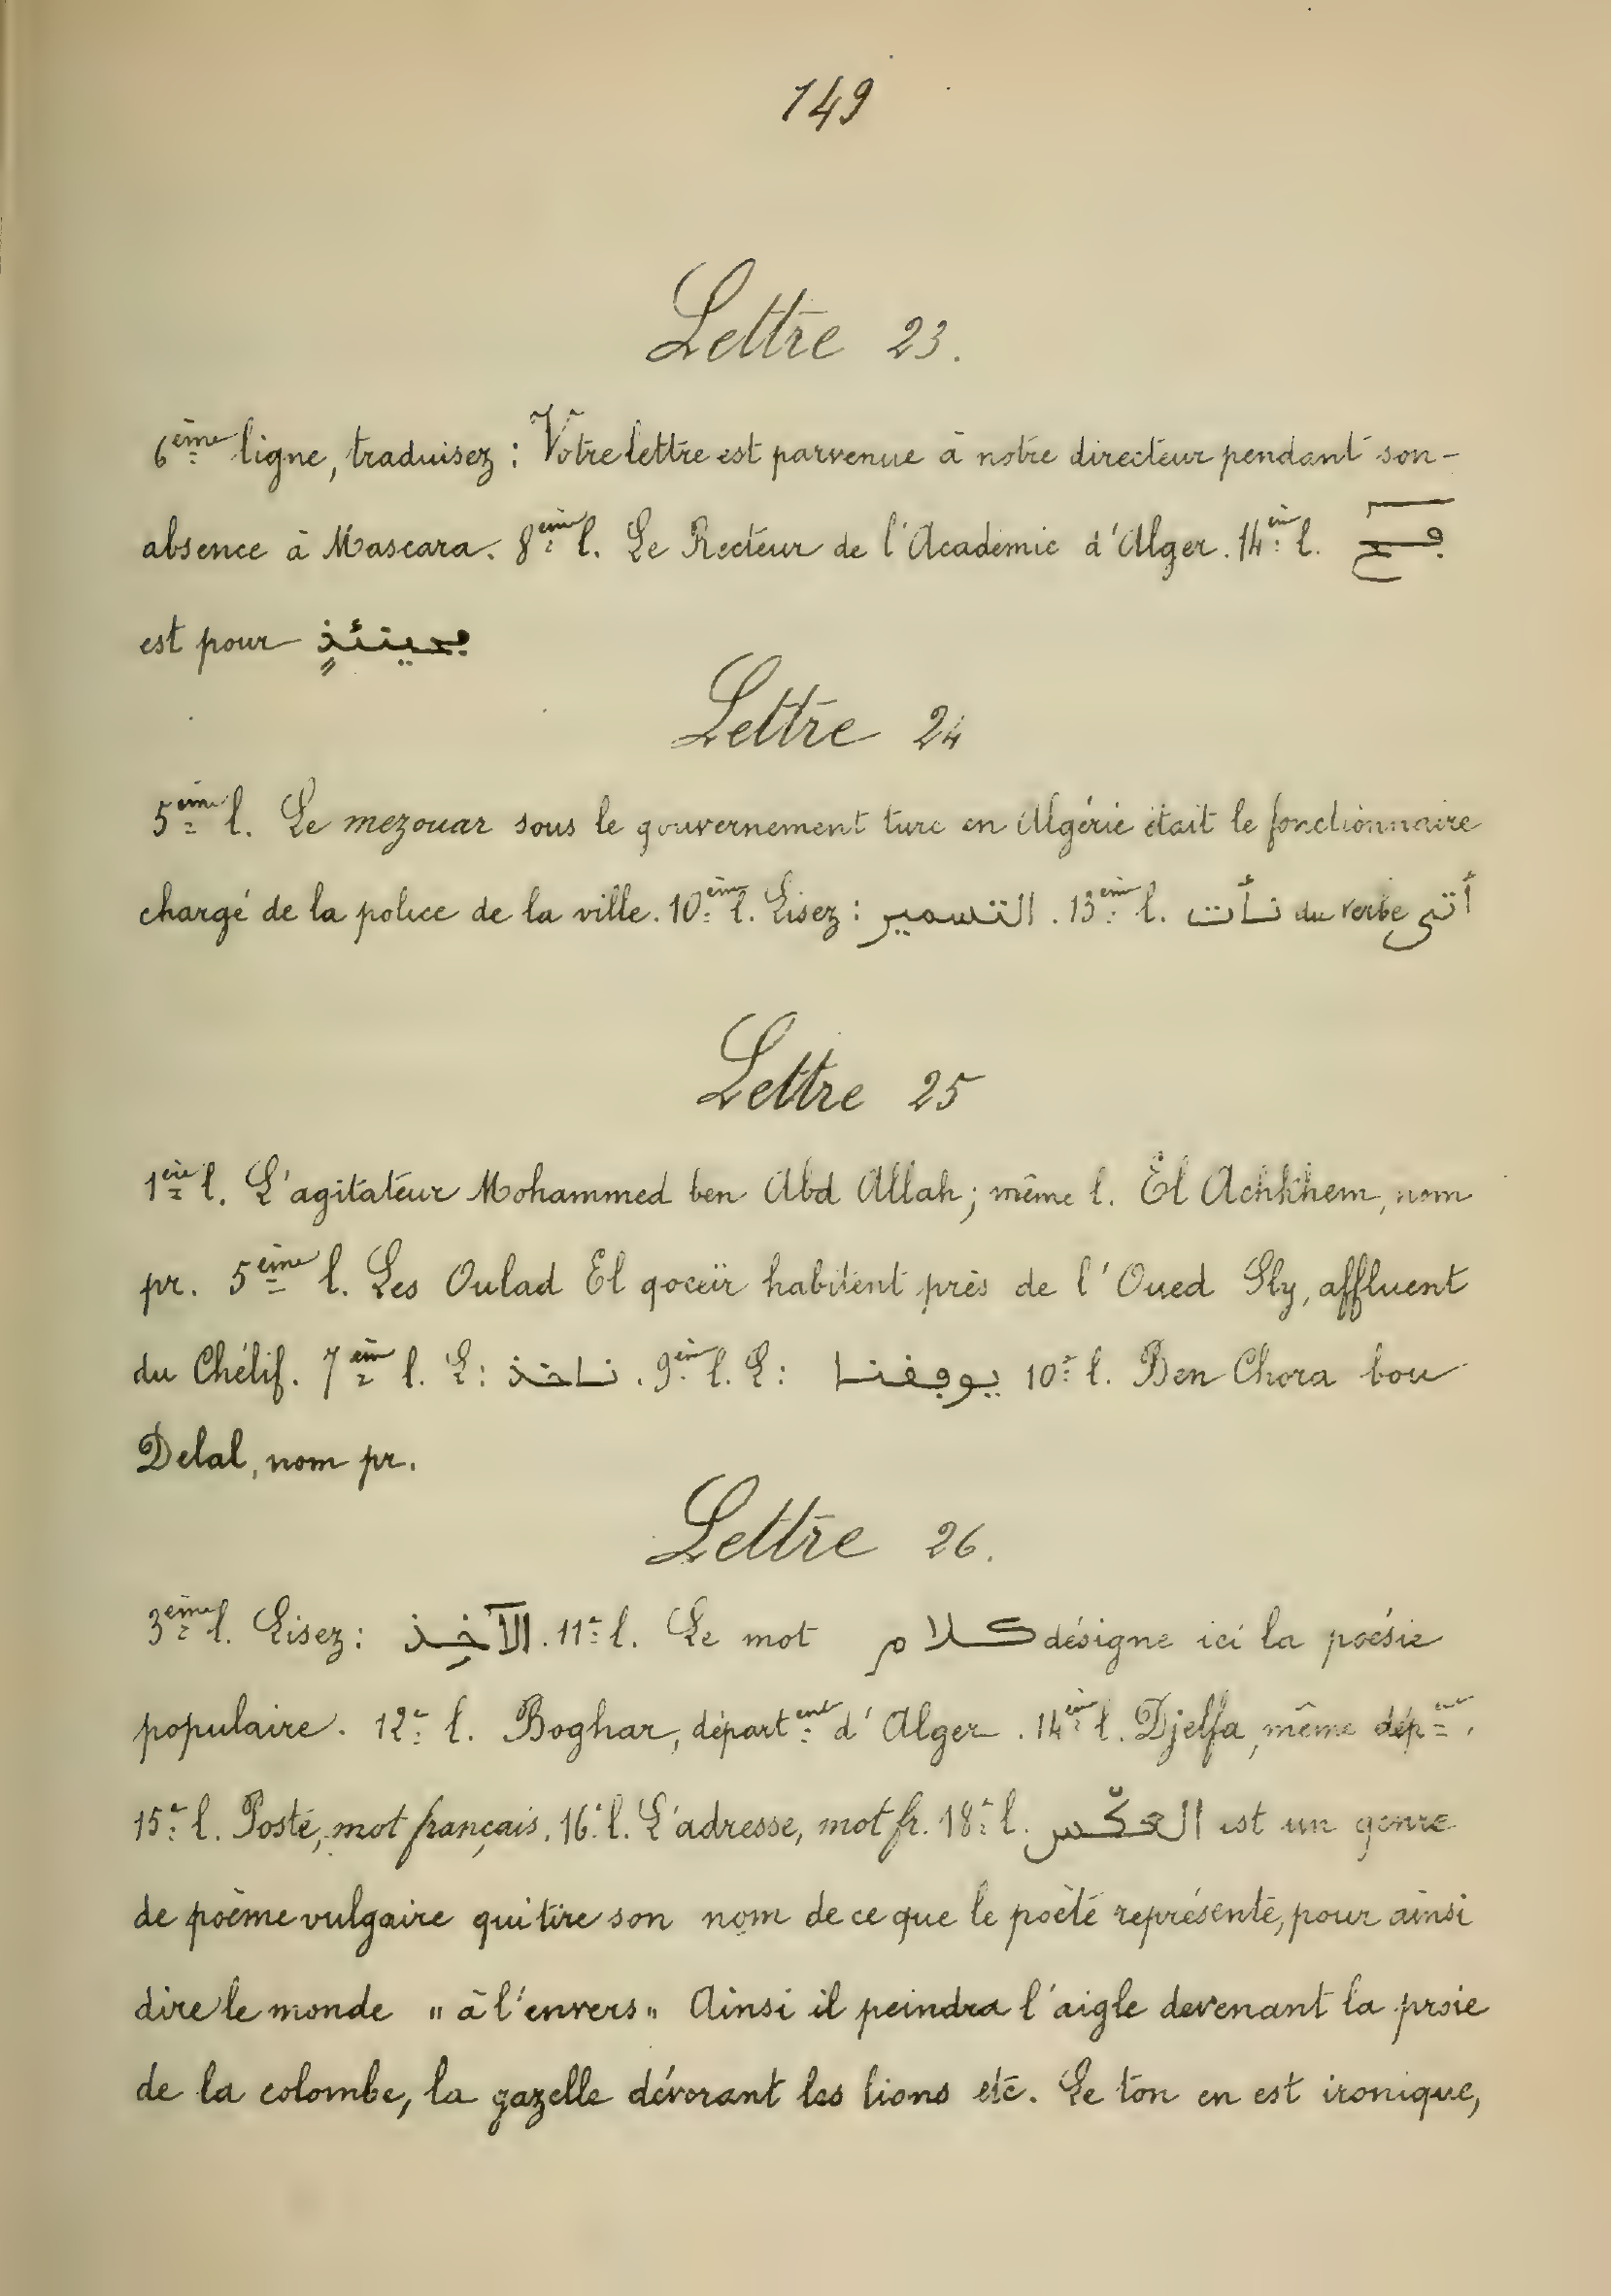 149
Lettre 23.
6ème ligne, traduisez : Votre lettre est parvenue à notre directeur pendant son-
absence à Mascara. 8ème l. Le Recteur de l'Académie d'Alger. 14èm l.
est pour ڢحينئذٍ
Lettre 24
5ème l. Le mezouar sous le gouvernement turc en Algérie était le fonctionnaire
chargé de la police de la ville. 10ème l. Lisez : التسمير . 13èm l. نأت du verbe أتى
Lettre 25
1ère l. L'agitateur Mohammed ben Abd Allah ; même l. El Achkhem, nom
pr. 5ème l. Les Oulad El qoceïr habitent près de l'Oued Sly, affluent
du Chélif. 7èm l. L : ناخذ . 9èm l. L : يوڢڢنا 10è l. Ben Chora bou
Delal, nom pr.
Lettre 26.
3ème l. Lisez : الآخِذ . 11è l. Le mot كلام désigne ici la poésie
populaire. 12è l. Boghar, départent d'Alger. 14èm l. Djelfa, même dépent.
15è l. Poste, mot français. 16è l. L'adresse, mot fr. 18è l. العكس est un genre
de poème vulgaire qui tire son nom de ce que le poète représente, pour ainsi
dire le monde " à l'envers " Ainsi il peindra l'aigle devenant la proie
de la colombe, la gazelle dévorant les lions etc. Le ton en est ironique,